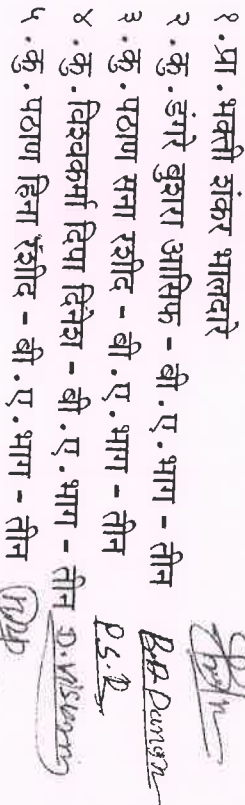 १.प्रा.भक्ती शंकर भालदारे
२.कु.डंगरे बुशरा आसिफ - बी.ए.भाग - तीन
३.कु.पठाण सना रशीद - बी.ए.भाग - तीन
४.कु.विश्वकर्मा दिपा दिनेश - बी.ए.भाग - तीन D.Vishwa
५.कु.पठाण हिना रशीद - बी.ए.भाग - तीन